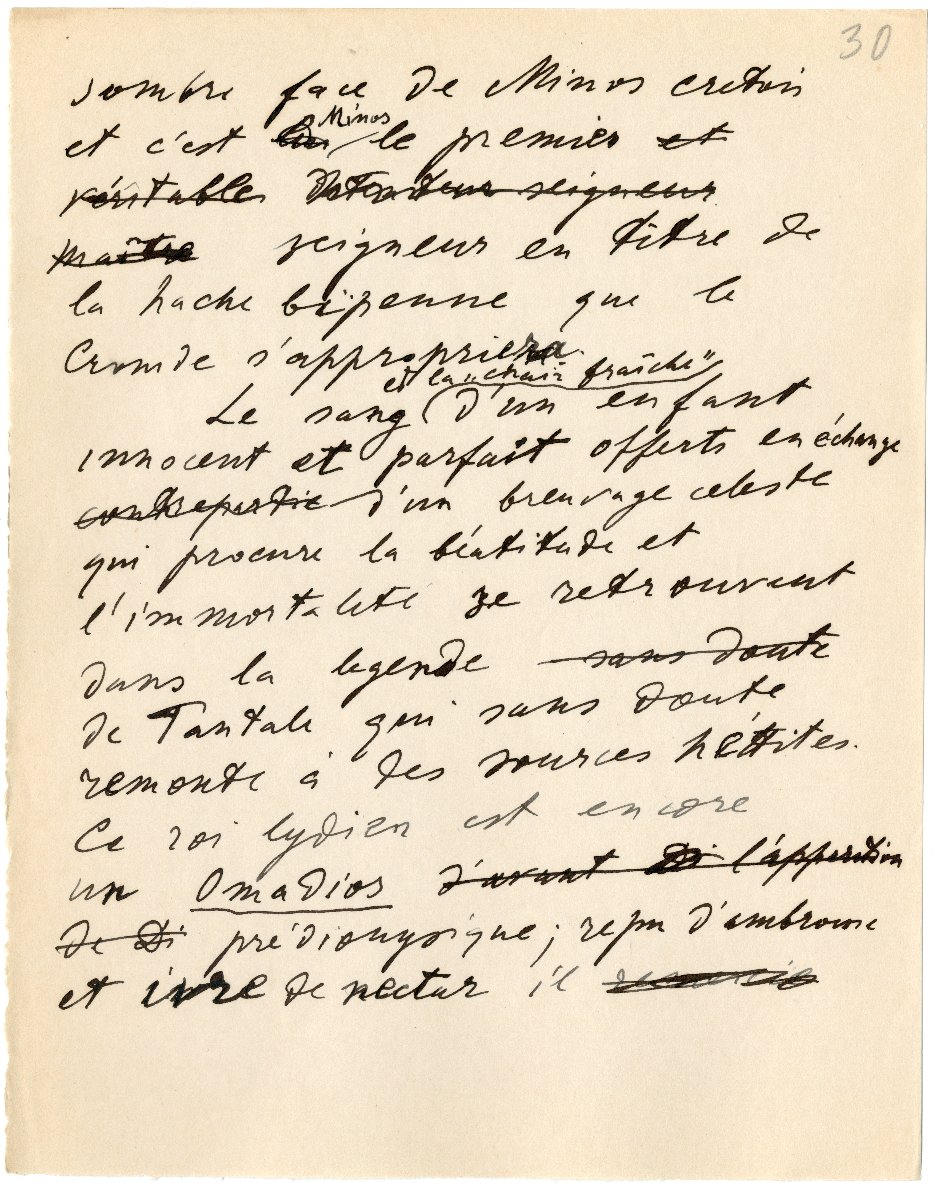 30
sombre face de Minos cretois
et c'est lui Minos le premier et
véritable détenteur seigneur
maître seigneur en titre de
la hache bipenne que le
Cronide s'appropriera.
et la "chair fraîche"
Le sang d'un enfant
innocent et parfait offerts en échange
contrepartie d'un breuvage celeste
qui procure la béatitude et
l'immortalité se retrouvent
dans la legende sans doute
de Tantale qui sans doute
remonte à des sources héttites.
Ce roi lydien est encore
un Omadios d'avant Di l'apparition
de Di prédionysique ; repu d'ambroisie
et ivre de nectar il